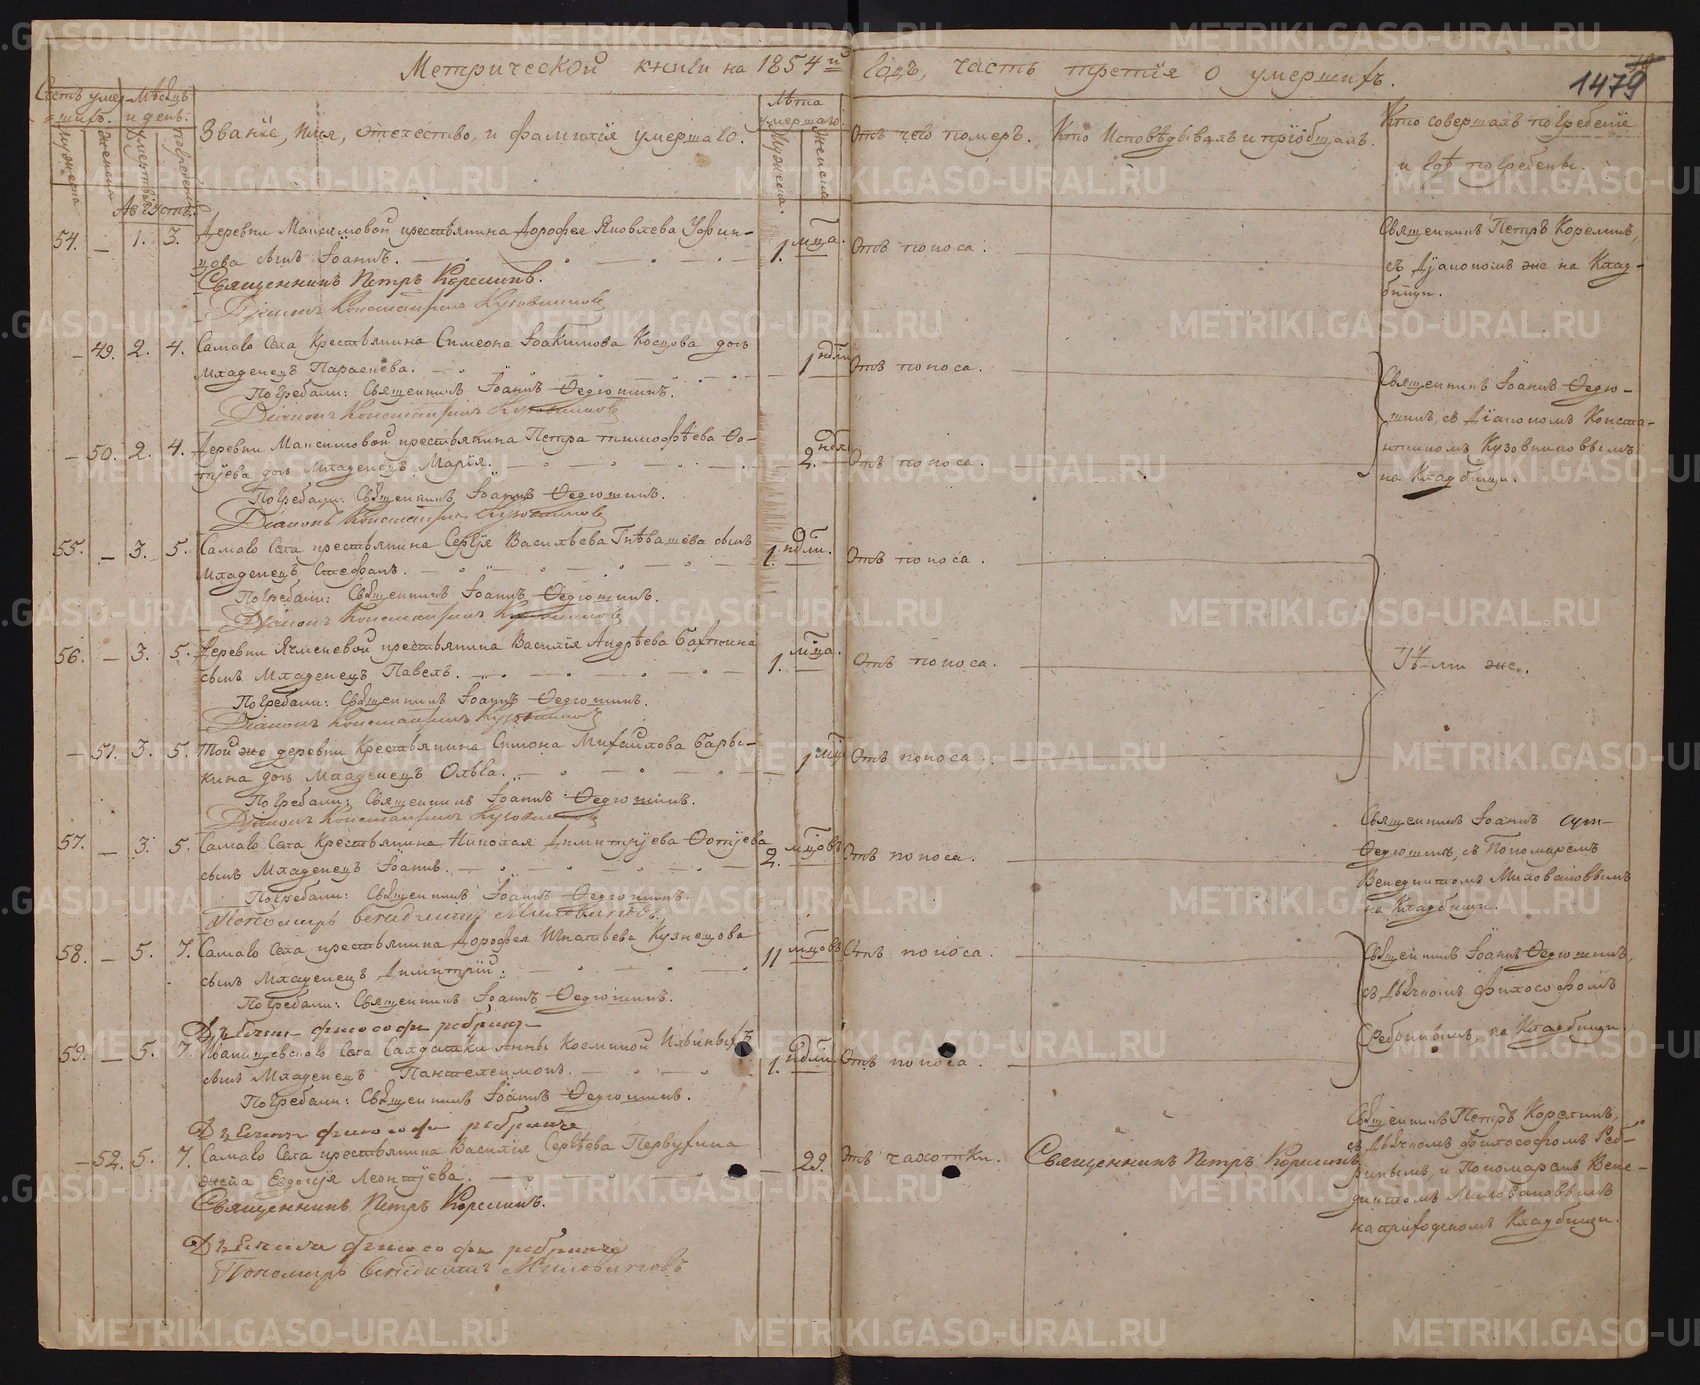 Метрической книги на 1854й Годъ, часть третія о умершихъ.
1479
Счетъ умершихъ.
Мѣсяцъ и день.
Званіе, имя, отечество, и фамилія умершаго.
Лѣта умершаго.
Отъ чего померъ.
Кто Исповѣдывалъ и пріобщалъ.
Кто совершалъ погребеніе
и гдѣ погребены.
Мужеска
Женска
Смерти
Погребенія
Мужеска.
Женска
Августъ.
54. — 1. 3. Деревни Максимовой крестьянина Дорофея Яковлева
сынъ Іоаннъ. 1. мца. Отъ поноса.
Священникъ Петръ Корелинъ,
съ Діакономъ же на Клад-
бищи.
Священникъ Петръ Корелинъ.
Діаконъ Константинъ Кузовниковъ
— 49. 2. 4. Самаго Села Крестьянина Симеона Іоакимова Косцова дочь
младенецъ Параскева. 1 ндли Отъ поноса.
Погребали: Священникъ Іоаннъ Ѳедюшинъ.
Діаконъ Константинъ Кузовниковъ
Священникъ Іоаннъ Ѳедю-
шинъ, съ Діакономъ Конста-
нтиномъ Кузовниковвымъ
на Кладбищи.
— 50. 2. 4. Деревни Максимовой крестьянина Петра тимоѳѣева Ѳо-
тіева дочь Младенецъ Марія. 2. ндли Отъ поноса.
Погребали: Священникъ Іоаннъ Ѳедюшинъ.
Діаконъ Константинъ Кузовниковъ
55. — 3. 5. Самаго Села крестьянина Сергія Васильева Гнѣвашева сынъ
Младенецъ Стефанъ. 1. ндли. Отъ поноса.
Погребали: Священникъ Іоаннъ Ѳедюшинъ.
Діаконъ Константинъ Кузовниковъ
56. — 3. 5. Деревни Ячменевой крестьянина Василія Андрѣева Бахтина
сынъ Младенецъ Павелъ. 1. мца. Отъ поноса.
Тѣ-ли же.
Погребали: Священникъ Іоаннъ Ѳедюшинъ.
Діаконъ Константинъ Кузовниковъ
— 51. 3. 5. Той же деревни Крестьянина Симона Михайлова Бары-
кина дочь Младенецъ Ольга. 1 Отъ поноса.
Погребали: Священникъ Іоаннъ Ѳедюшинъ.
Діаконъ Константинъ Кузовниковъ
57. — 3. 5. Самаго Села Крестьянина Николая Димитріева Ѳотіева
сынъ Младенецъ Іоаннъ. 2. мцовъ Отъ поноса.
Священникъ Іоаннъ
Ѳедюшинъ, съ Пономаремъ
Венедиктомъ Миловановвымъ
на Кладбищи.
Погребали: Священникъ Іоаннъ Ѳедюшинъ
Пономарь Венедиктъ Миловановъ.
58. — 5. 7. Самаго Села крестьянина Дорофея Игнатьева Кузнецова
сынъ Младенецъ Димитрій. 11 мцовъ Отъ поноса.
Погребали: Священникъ Іоаннъ Ѳедюшинъ.
Дьячекъ философъ
Священникъ Іоаннъ Ѳедюшинъ,
съ Дьячкомъ философомъ
на Кладбищи.
59. — 5. 7. Иванищевскаго Села Салдатки Анны Косминой Ильиныхъ
сынъ Младенецъ Пантелеимонъ. 1. ндли. Отъ поноса.
Погребали: Священникъ Іоаннъ Ѳедюшинъ.
Дьячекъ философъ
— 52. 5. 7. Самаго Села крестьянина Василія Сергѣева Первухина
жена Евдокія Леонтіева. 29. Отъ чахотки. Священникъ Петръ Корелинъ
Священникъ Петръ Корелинъ,
съ Дьячкомъ Философомъ
и Пономаремъ Вене-
диктомъ Миловановвымъ
на приходскомъ Кладбищи.
Священникъ Петръ Корелинъ.
Дьячекъ философъ
Пономарь Венедиктъ Миловановъ